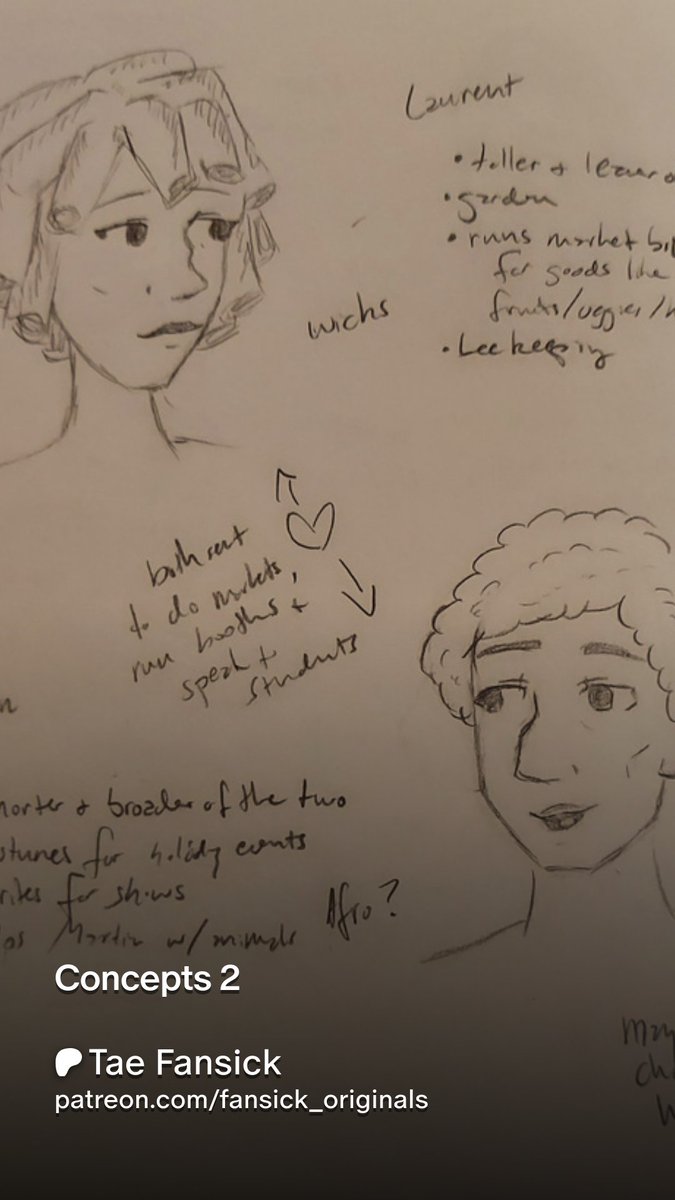 Laurent
• taller + leaner
• garden
• runs market
for goods like
fruits/veggies/
• beekeeping
wicks
both
to do markets,
run booths +
speak to
students
+ broader of the two
for holiday events
for shows
Martin w/ animals
Afro?
Concepts 2
Tae Fansick
patreon.com/fansick_originals